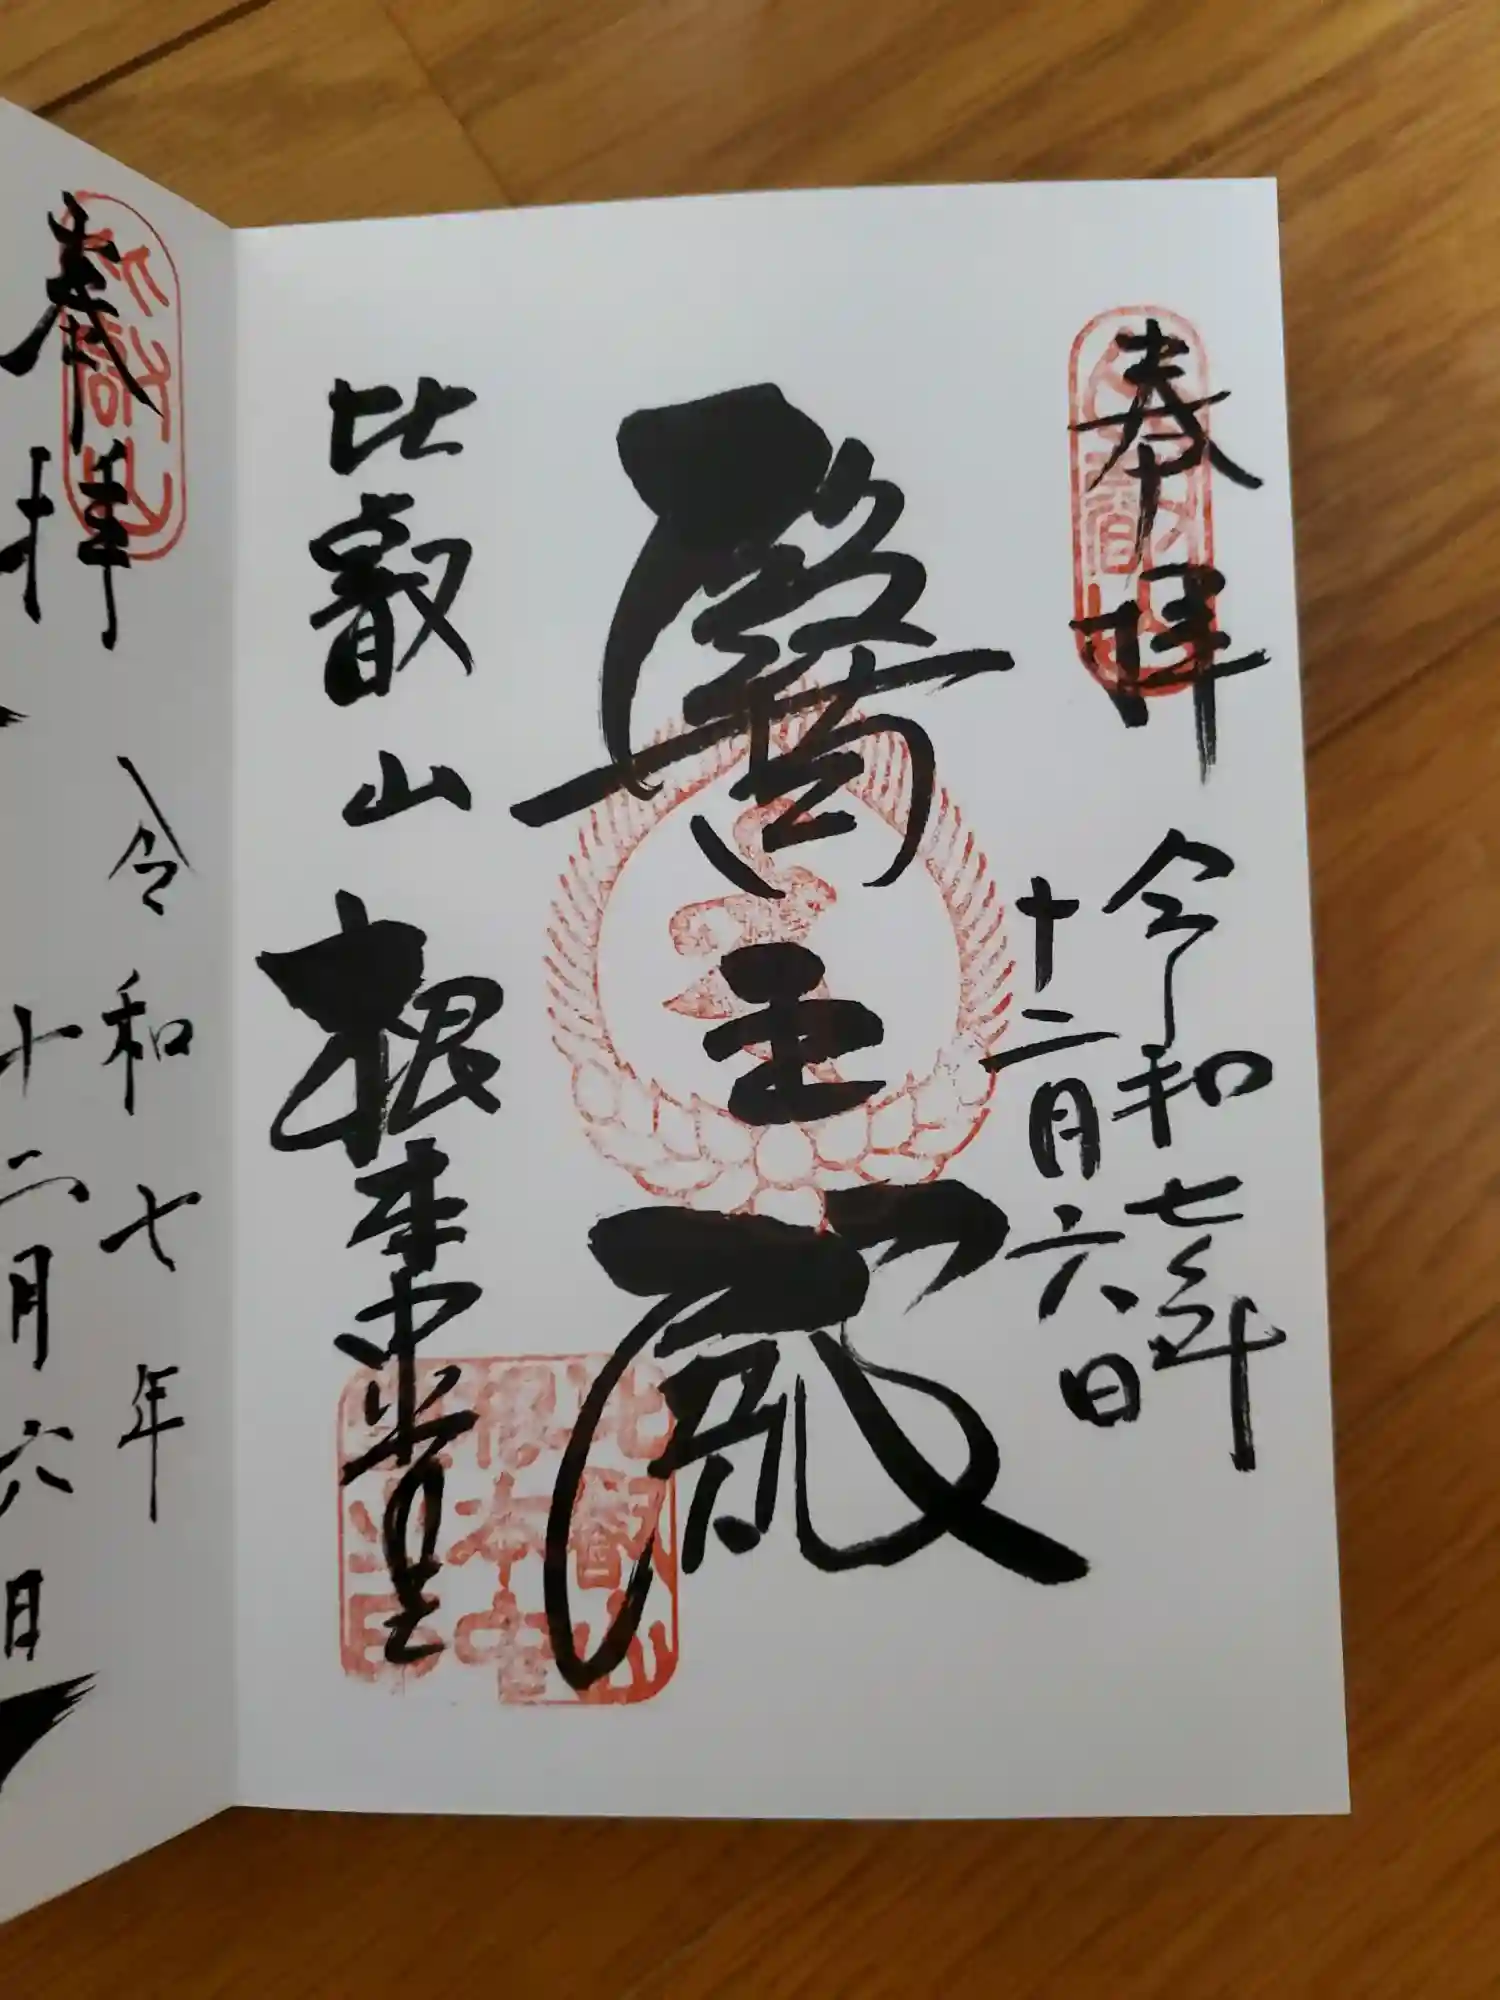 奉拝
令和七年
十二月六日
醫王殿
比叡山
根本中堂
比叡山
根本中堂
奉拝
令和七年
十二月六日